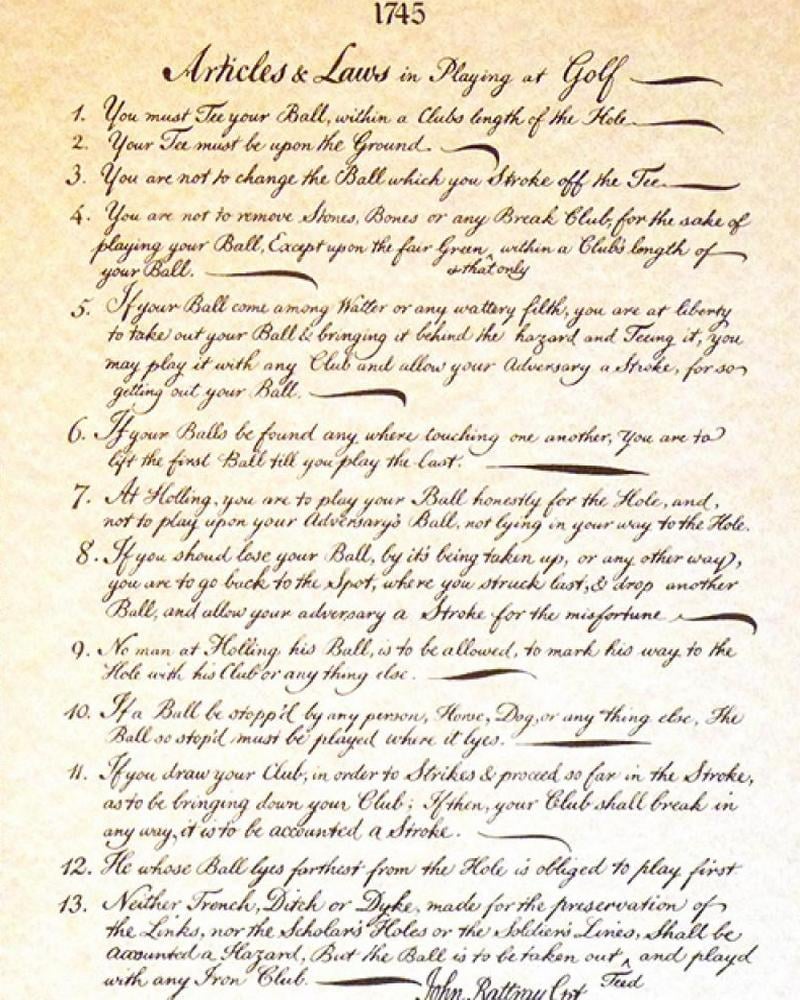 1745
Articles & Laws in Playing at Golf
1. You must Tee your Ball, within a Clubs length of the Hole.
2. Your Tee must be upon the Ground.
3. You are not to change the Ball which you Stroke off the Tee.
4. You are not to remove Stones, Bones or any Break Club, for the sake of
playing your Ball, Except upon the fair Green, within a Club's length of
& that only
your Ball.
5. If your Ball come among Watter or any wattery filth, you are at liberty
to take out your Ball & bringing it behind the hazard and Teeing it, you
may play it with any Club and allow your Adversary a Stroke, for so
getting out your Ball.
6. If your Balls be found any where touching one another, You are to
lift the first Ball till you play the last.
7. At Holling, you are to play your Ball honestly for the Hole, and,
not to play upon your Adversary's Ball, not lying in your way to the Hole.
8. If you shoud lose your Ball, by it's being taken up, or any other way,
you are to go back to the Spot, where you struck last, & drop another
Ball, and allow your adversary a Stroke for the misfortune
9. No man at Holling his Ball, is to be allowed, to mark his way to the
Hole with his Club or any thing else.
10. If a Ball be stopp'd by any person, Horse, Dog, or any thing else, The
Ball so stop'd must be played where it lyes.
11. If you draw your Club, in order to Strike & proceed so far in the Stroke,
as to be bringing down your Club; If then, your Club shall break in
any way, it is to be accounted a Stroke.
12. He whose Ball lyes farthest from the Hole is obliged to play first
13. Neither Trench, Ditch or Dyke, made for the preservation of
the Links, nor the Scholar's Holes or the Soldier's Lines, Shall be
accounted a Hazard, But the Ball is to be taken out ‸ and playd
Teed
with any Iron Club.
John Rattray Cpt